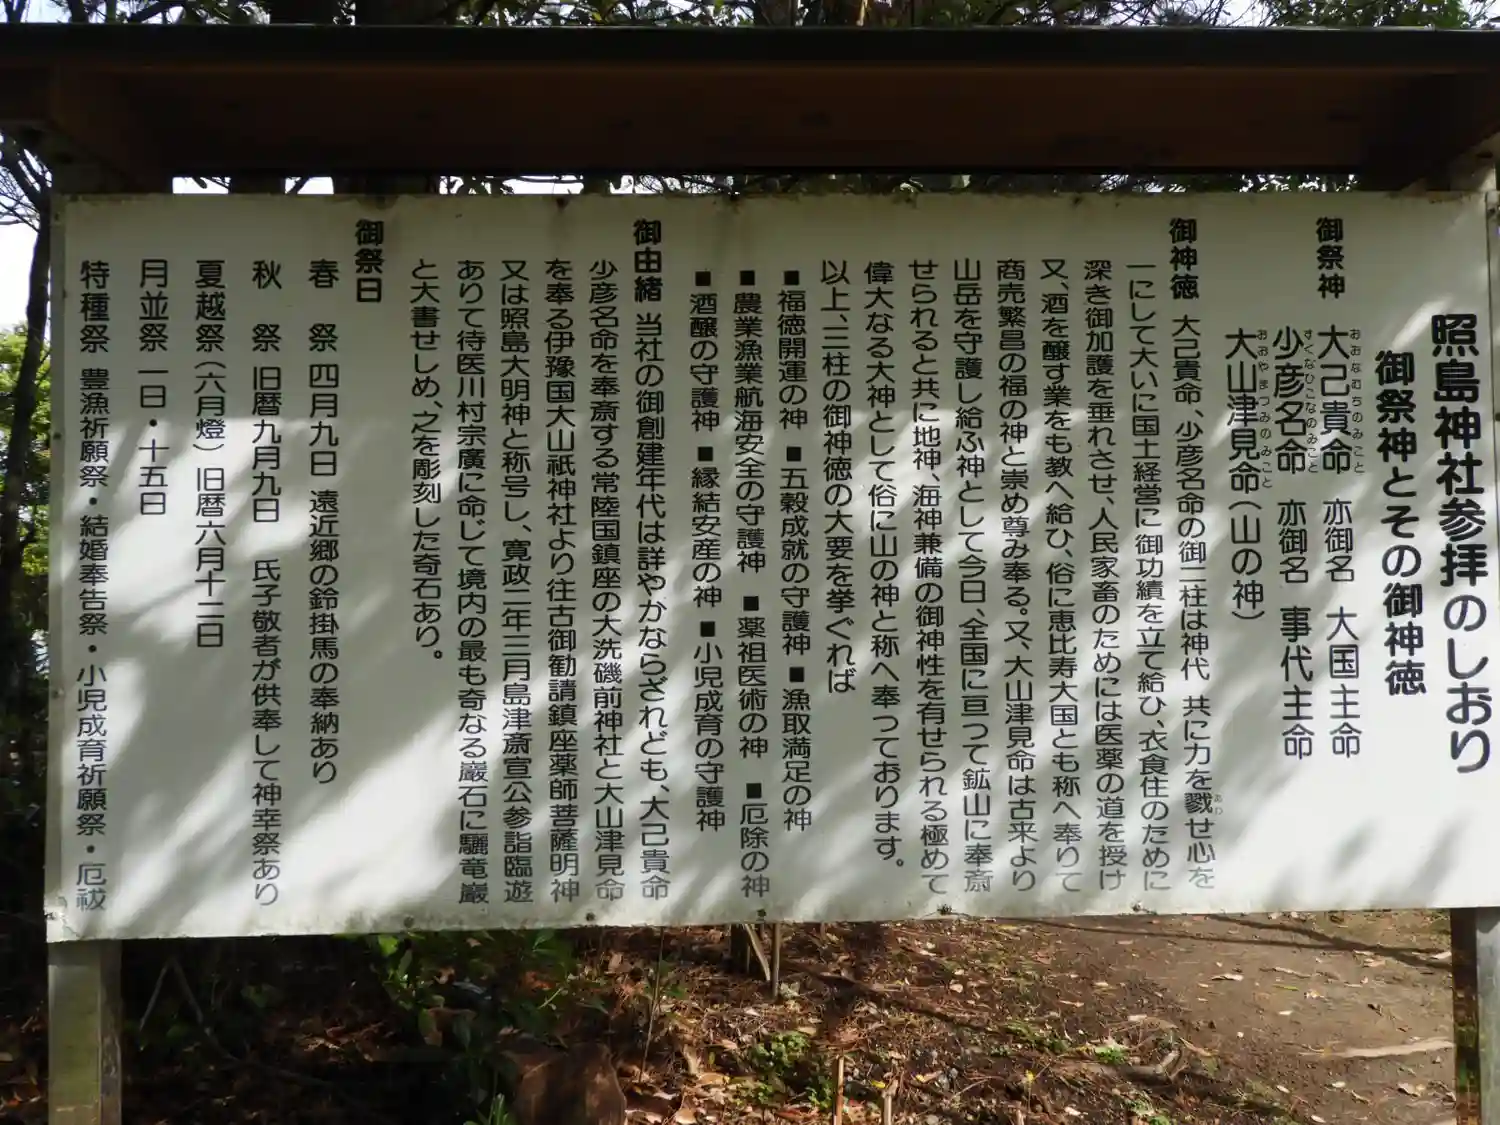 照島神社参拝のしおり
御祭神とその御神徳
御祭神 大己貴命 亦御名 大国主命
おおなむちのみこと
少彦名命 亦御名 事代主命
すくなひこなのみこと
大山津見命(山の神)
おおやまつみのみこと
御神徳 大己貴命、少彦名命の御二柱は神代 共に力を戮せ心を
あわ
一にして大いに国土経営に御功績を立て給ひ、衣食住のために
深き御加護を垂れさせ、人民家畜のためには医薬の道を授け
又、酒を醸す業をも教へ給ひ、俗に恵比寿大国とも称へ奉りて
商売繁昌の福の神と崇め尊み奉る。又、大山津見命は古来より
山岳を守護し給ふ神として今日、全国に亘つて鉱山に奉斎
せられると共に地神、海神兼備の御神性を有せられる極めて
偉大なる大神として俗に山の神と称へ奉つております。
以上、三柱の御神徳の大要を挙ぐれば
■福徳開運の神 ■五穀成就の守護神 ■漁取満足の神
■農業漁業航海安全の守護神 ■薬祖医術の神 ■厄除の神
■酒醸の守護神 ■縁結安産の神 ■小児成育の守護神
御由緒 当社の御創建年代は詳やかならざれども、大己貴命
少彦名命を奉斎する常陸国鎮座の大洗磯前神社と大山津見命
を奉る伊豫国大山祇神社より往古御勧請鎮座薬師菩薩明神
又は照島大明神と称号し、寛政二年三月島津斎宣公参詣臨遊
ありて待医川村宗廣に命じて境内の最も奇なる巌石に驪竜巌
と大書せしめ、之を彫刻した奇石あり。
御祭日
春 祭 四月九日 遠近郷の鈴掛馬の奉納あり
秋 祭 旧暦九月九日 氏子敬者が供奉して神幸祭あり
夏越祭(六月燈)旧暦六月十二日
月並祭 一日・十五日
特種祭 豊漁祈願祭・結婚奉告祭・小児成育祈願祭・厄祓